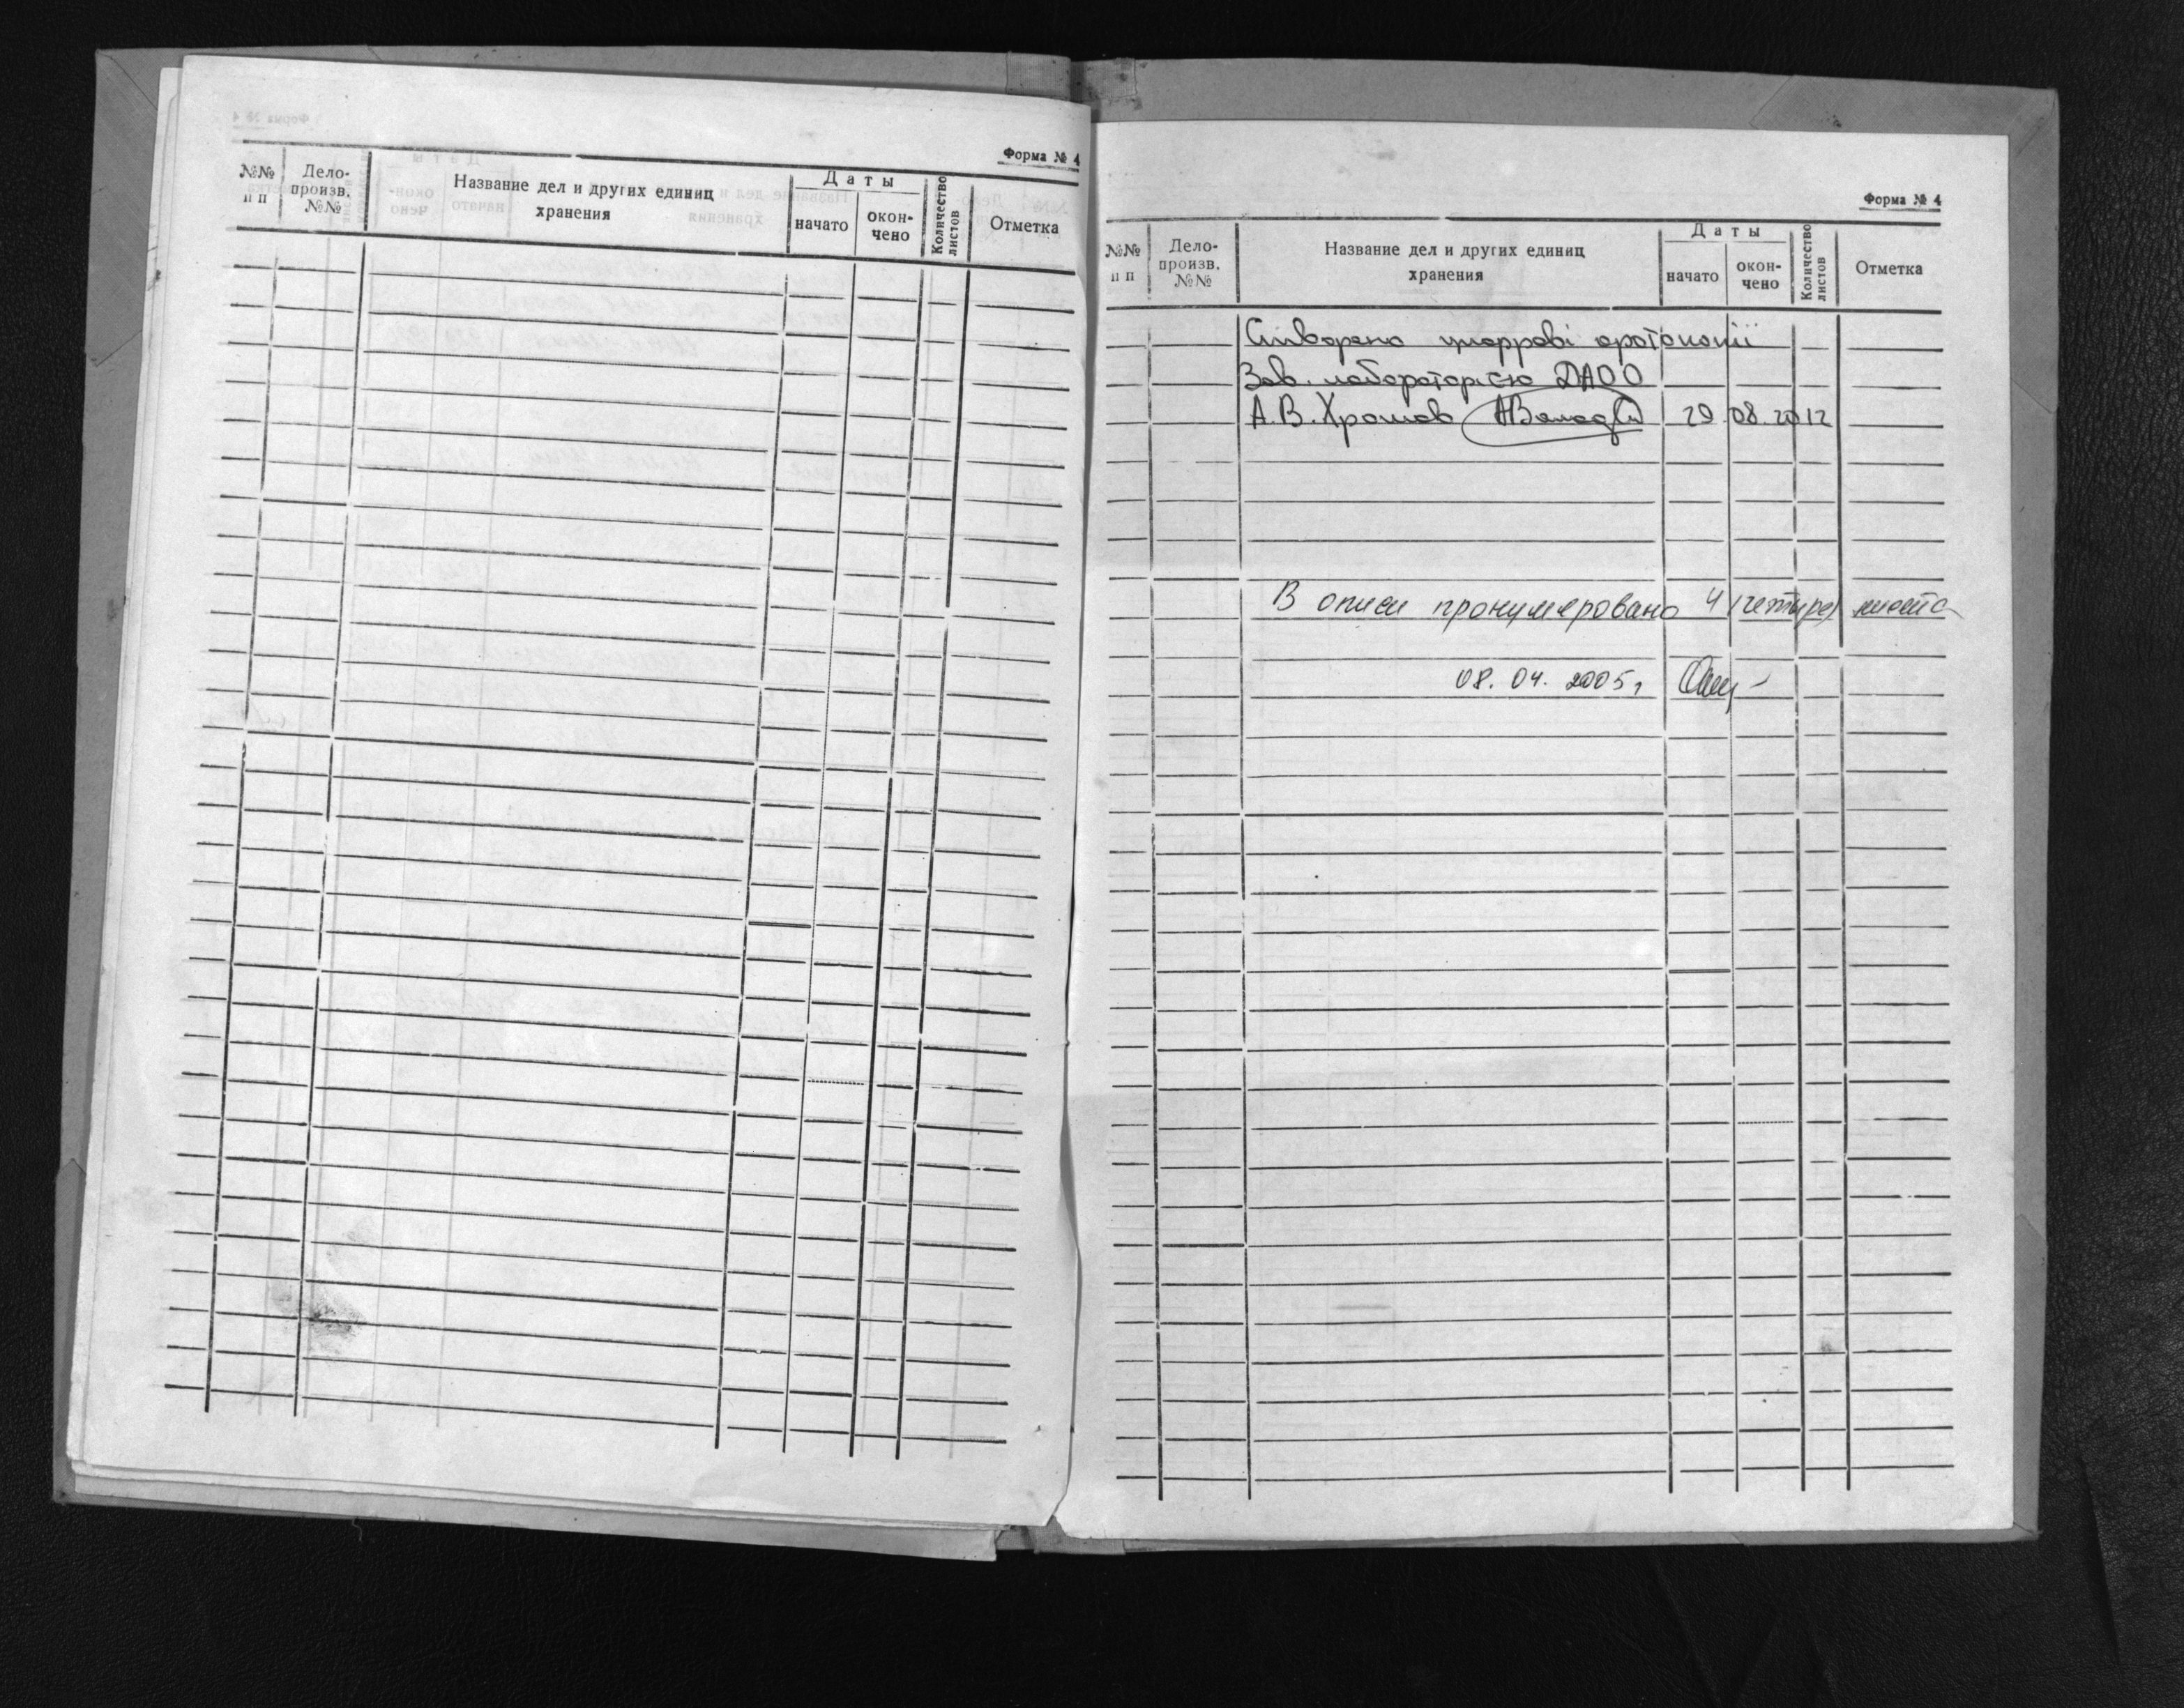 Форма № 4
№№ п п
Дело-произв. №№
Название дел и других единиц хранения
Даты
начато
окон-чено
Количество листов
Отметка
Форма № 4
№№ п п
Дело-произв. №№
Название дел и других единиц хранения
Даты
начато
окон-чено
Количество листов
Отметка
Створено цифрові фотокопії
Зав. лабораторією ДАОО
А.В. 29.08.2012
В описи пронумеровано 4 (четыре) листа
08.04.2005г